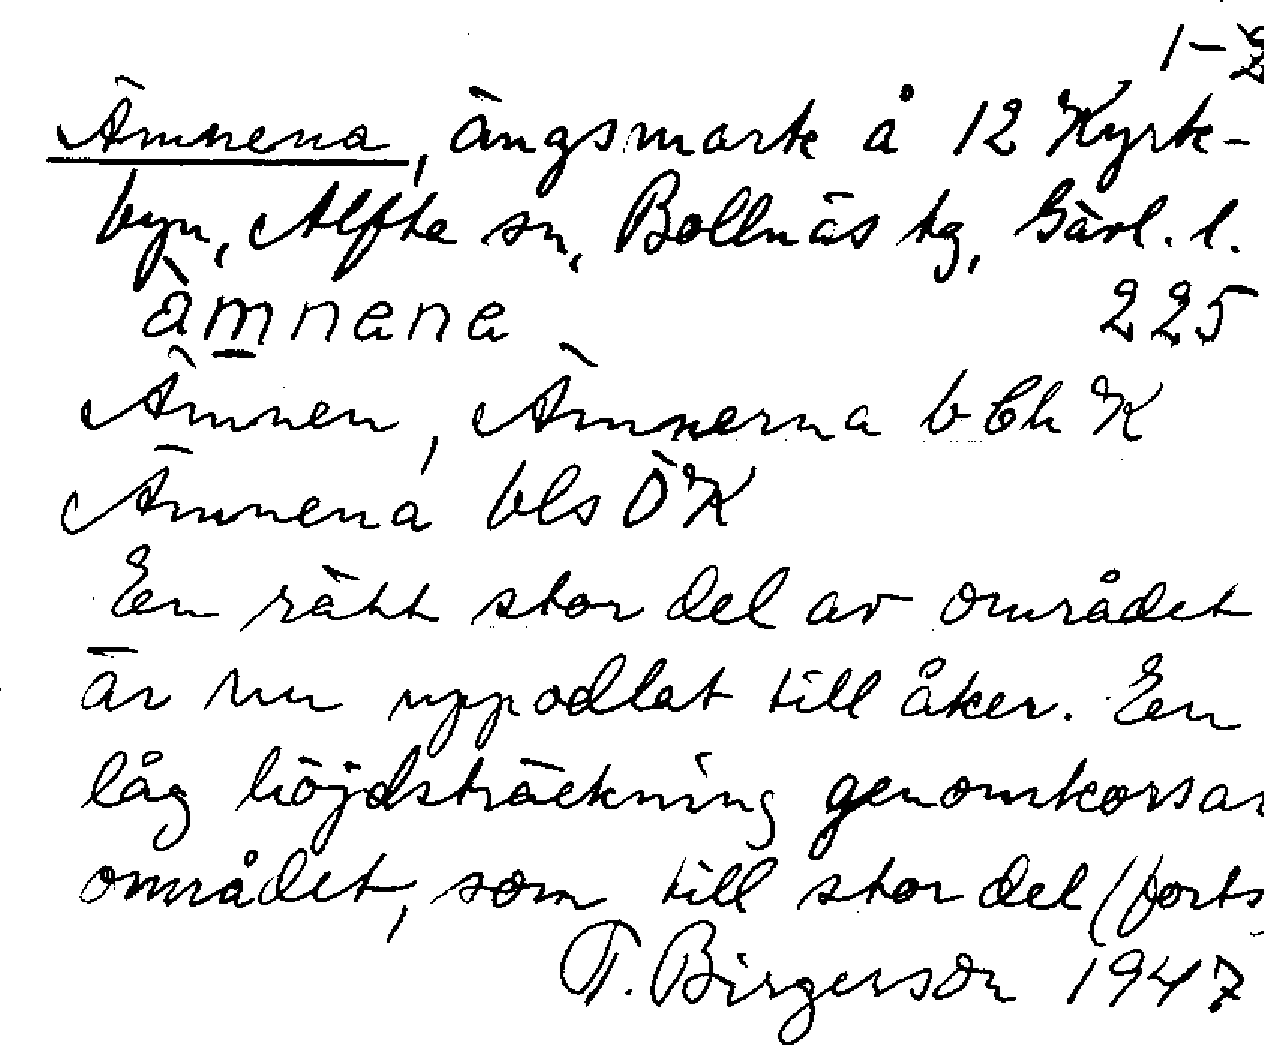 1-2
Ämnena, ängsmark å 12 Kyrk-
byn, Alfta sn, Bollnäs tg, Gävl. l.
ämnana 225
Ämnen, Ämnerna b Ch K
Ämnena bls ÖK
En rätt stor del av området
är nu uppodlat till åker. En
låg höjdsträckning genomkorsar
området, som till stor del (forts
T. Birgerson 1947